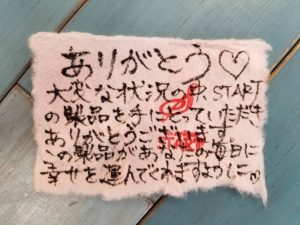 ありがとう♡
大変な状況の中START
の製品を手にとっていただき
ありがとうございます
この製品があなたの毎日に
幸せを運んでくれますように♡
START